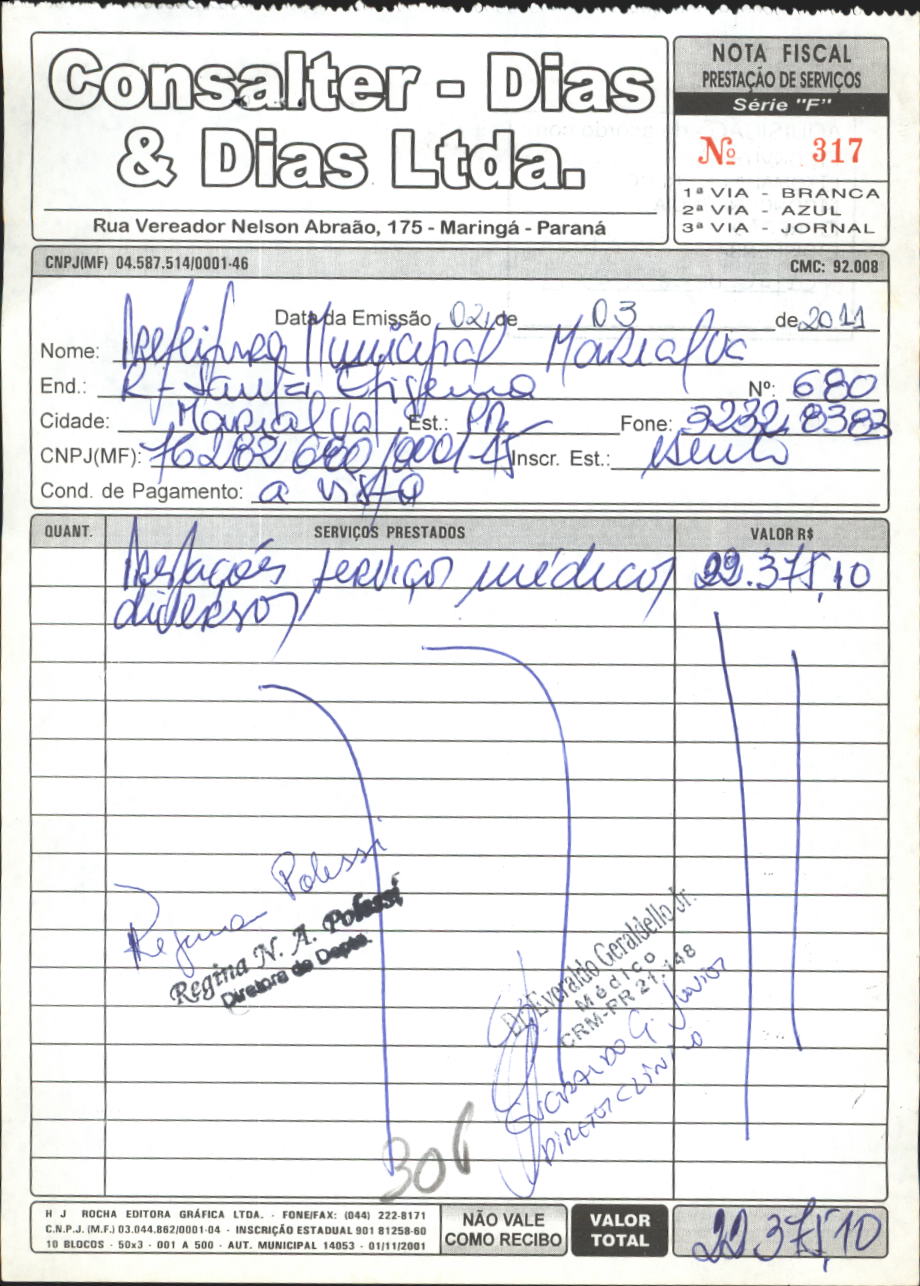 Consalter - Dias
& Dias Ltda.
Rua Vereador Nelson Abraão, 175 - Maringá - Paraná
NOTA FISCAL
PRESTAÇÃO DE SERVIÇOS
Série "F"
Nº 317
1ª VIA - BRANCA
2ª VIA - AZUL
3ª VIA - JORNAL
CNPJ(MF) 04.587.514/0001-46 CMC: 92.008
Data da Emissão 02 de 03 de 2011
Nome: Prefeitura Municipal Marialva
End.: R - Santa Efigenia Nº: 680
Cidade: Marialva Est.: PR Fone: 3232.8383
CNPJ(MF): 76282680/0001-45 Inscr. Est.: isento
Cond. de Pagamento: a vista
QUANT. SERVIÇOS PRESTADOS VALOR R$
Prestações serviços médicos 22.375,10
diversos
Regina Polessi
Regina N. A. Polessi
Diretora de Depto.
Dr. Everaldo Geraldello Jr.
Médico
CRM-PR 21.148
Everaldo G. Junior
DIRETOR CLÍNICO
306
H J ROCHA EDITORA GRÁFICA LTDA. - FONE/FAX: (044) 222-8171
C.N.P.J. (M.F.) 03.044.862/0001-04 - INSCRIÇÃO ESTADUAL 901 81258-60
10 BLOCOS - 50x3 - 001 A 500 - AUT. MUNICIPAL 14053 - 01/11/2001
NÃO VALE
COMO RECIBO
VALOR
TOTAL
22.375,10